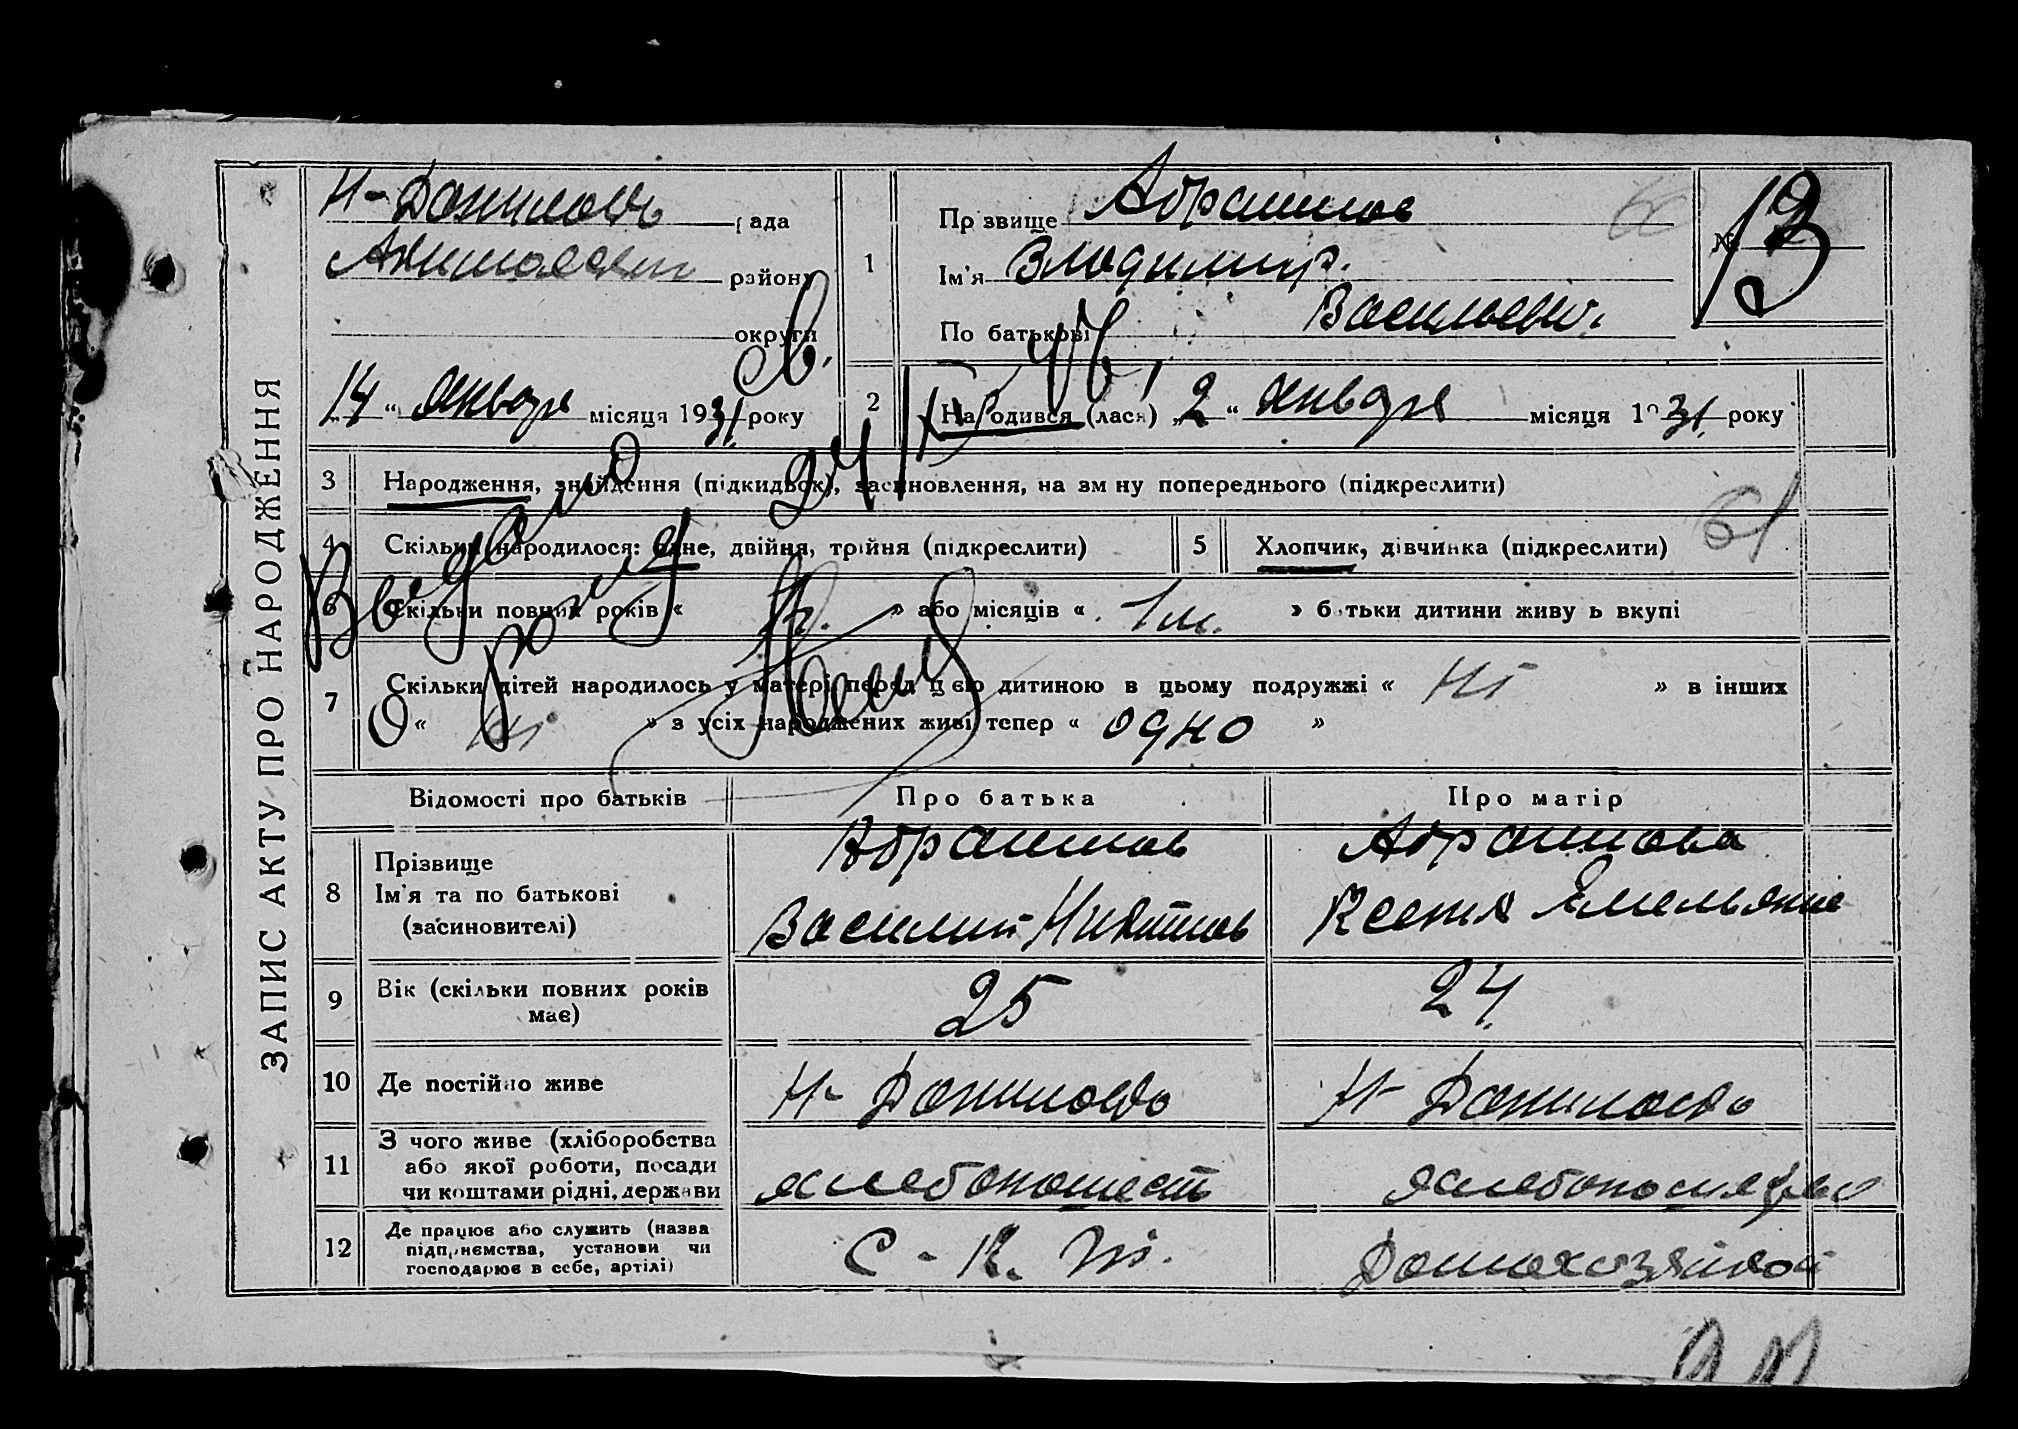 ЗАПИС АКТУ ПРО НАРОДЖЕННЯ
Н-Данилов рада
району
округи
14 „ января місяця 1931. року
1
Прізвище Абрамов
Ім'я Владимир.
По батькові Васильев.
№ 13
2
Народився (лася) „2 “ января місяця 1931. року
3 Народження, знайдення (підкидьок), засиновлення, на зміну попереднього (підкреслити)
61
4 Скільки народилося: одне, двійня, трійня (підкреслити)
5 Хлопчик, дівчинка (підкреслити)
6 Скільки повних років « » або місяців « 1 м. » батьки дитини живуть вкупі
7 Скільки дітей народилось у матері перед цією дитиною в цьому подружжі « Ні » в інших
« Ні » з усіх народжених живі тепер « одно »
Выдано
24/IX
46
Відомості про батьків Про батька Про матір
8 Прізвище
Ім'я та по батькові
(засиновителі)
Абрамов
Василий Никитов
Абрамова
Ксения Емельянов
9 Вік (скільки повних років має)
25
24
10 Де постійно живе
Н- Данилов
Н- Данилов
11 З чого живе (хліборобства
або якої роботи, посади
чи коштами рідні, держави
12 Де працює або служить (назва
підприємства, установи чи
господарює в себе, артілі)
Домохозяйкой